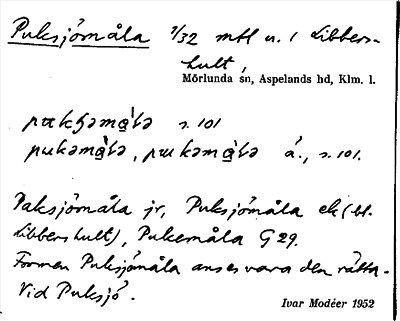 Puksjömåla 1/32 mtl u. i Libbers-
hult,
Mörlunda sn, Aspelands hd, Klm. l.
s. 101
å., s. 101.
Paksjömåla jr, Puksjömåla ek (bl.
Libbershult), Pukemåla G 29.
Formen Puksjömåla anses vara den rätta.
Vid Puksjö.
Ivar Modéer 1952